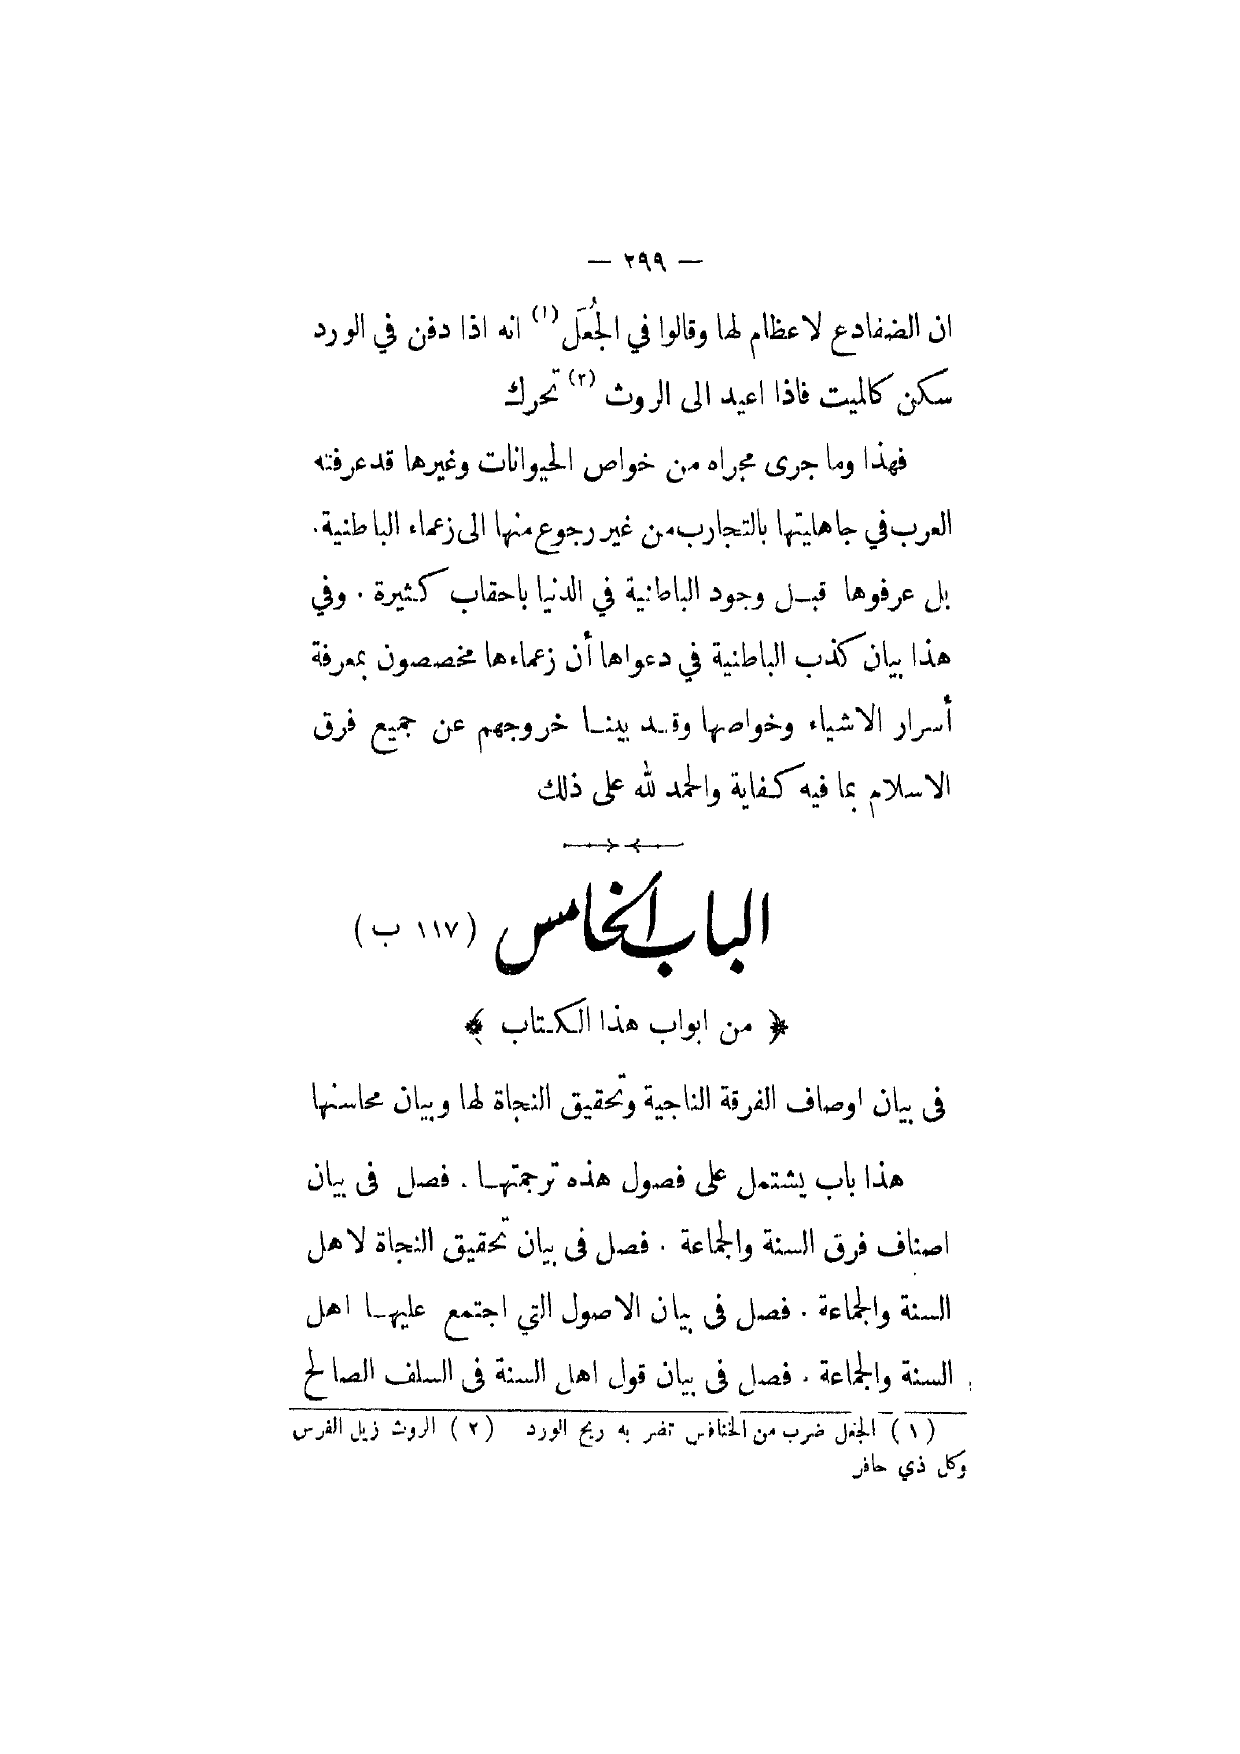 — ٢٩٩ —
ان الضفادع لاعظام لها وقالوا في الجُعَل (١) انه اذا دفن في الورد
سكن كالميت فاذا اعيد الى الروث (٢) تحرك
فهذا وما جرى مجراه من خواص الحيوانات وغيرها قد عرفته
العرب في جاهليتها بالتجارب من غير رجوع منها الى زعماء الباطنية.
بل عرفوها قبـل وجود الباطنية في الدنيا باحقاب كثيرة . وفي
هذا بيان كذب الباطنية في دعواها أن زعماءها مخصصون بمعرفة
أسرار الاشياء وخواصها وقـد بينـا خروجهم عن جميع فرق
الاسلام بما فيه كفاية والحمد لله على ذلك
الباب الخامس (١١٧ ب)
﴿ من ابواب هذا الكـتاب ﴾
فى بيان اوصاف الفرقة الناجية وتحقيق النجاة لها وبيان محاسنها
هذا باب يشتمل على فصول هذه ترجمتهـا . فصل فى بيان
اصناف فرق السنة والجماعة . فصل فى بيان تحقيق النجاة لاهل
السنة والجماعة . فصل فى بيان الاصول التي اجتمع عليهـا اهل
السنة والجماعة . فصل فى بيان قول اهل السنة فى السلف الصالح
(١) الجعل ضرب من الخنافس تضر به ريح الورد (٢) الروث زبل الفرس
وكل ذي حافر